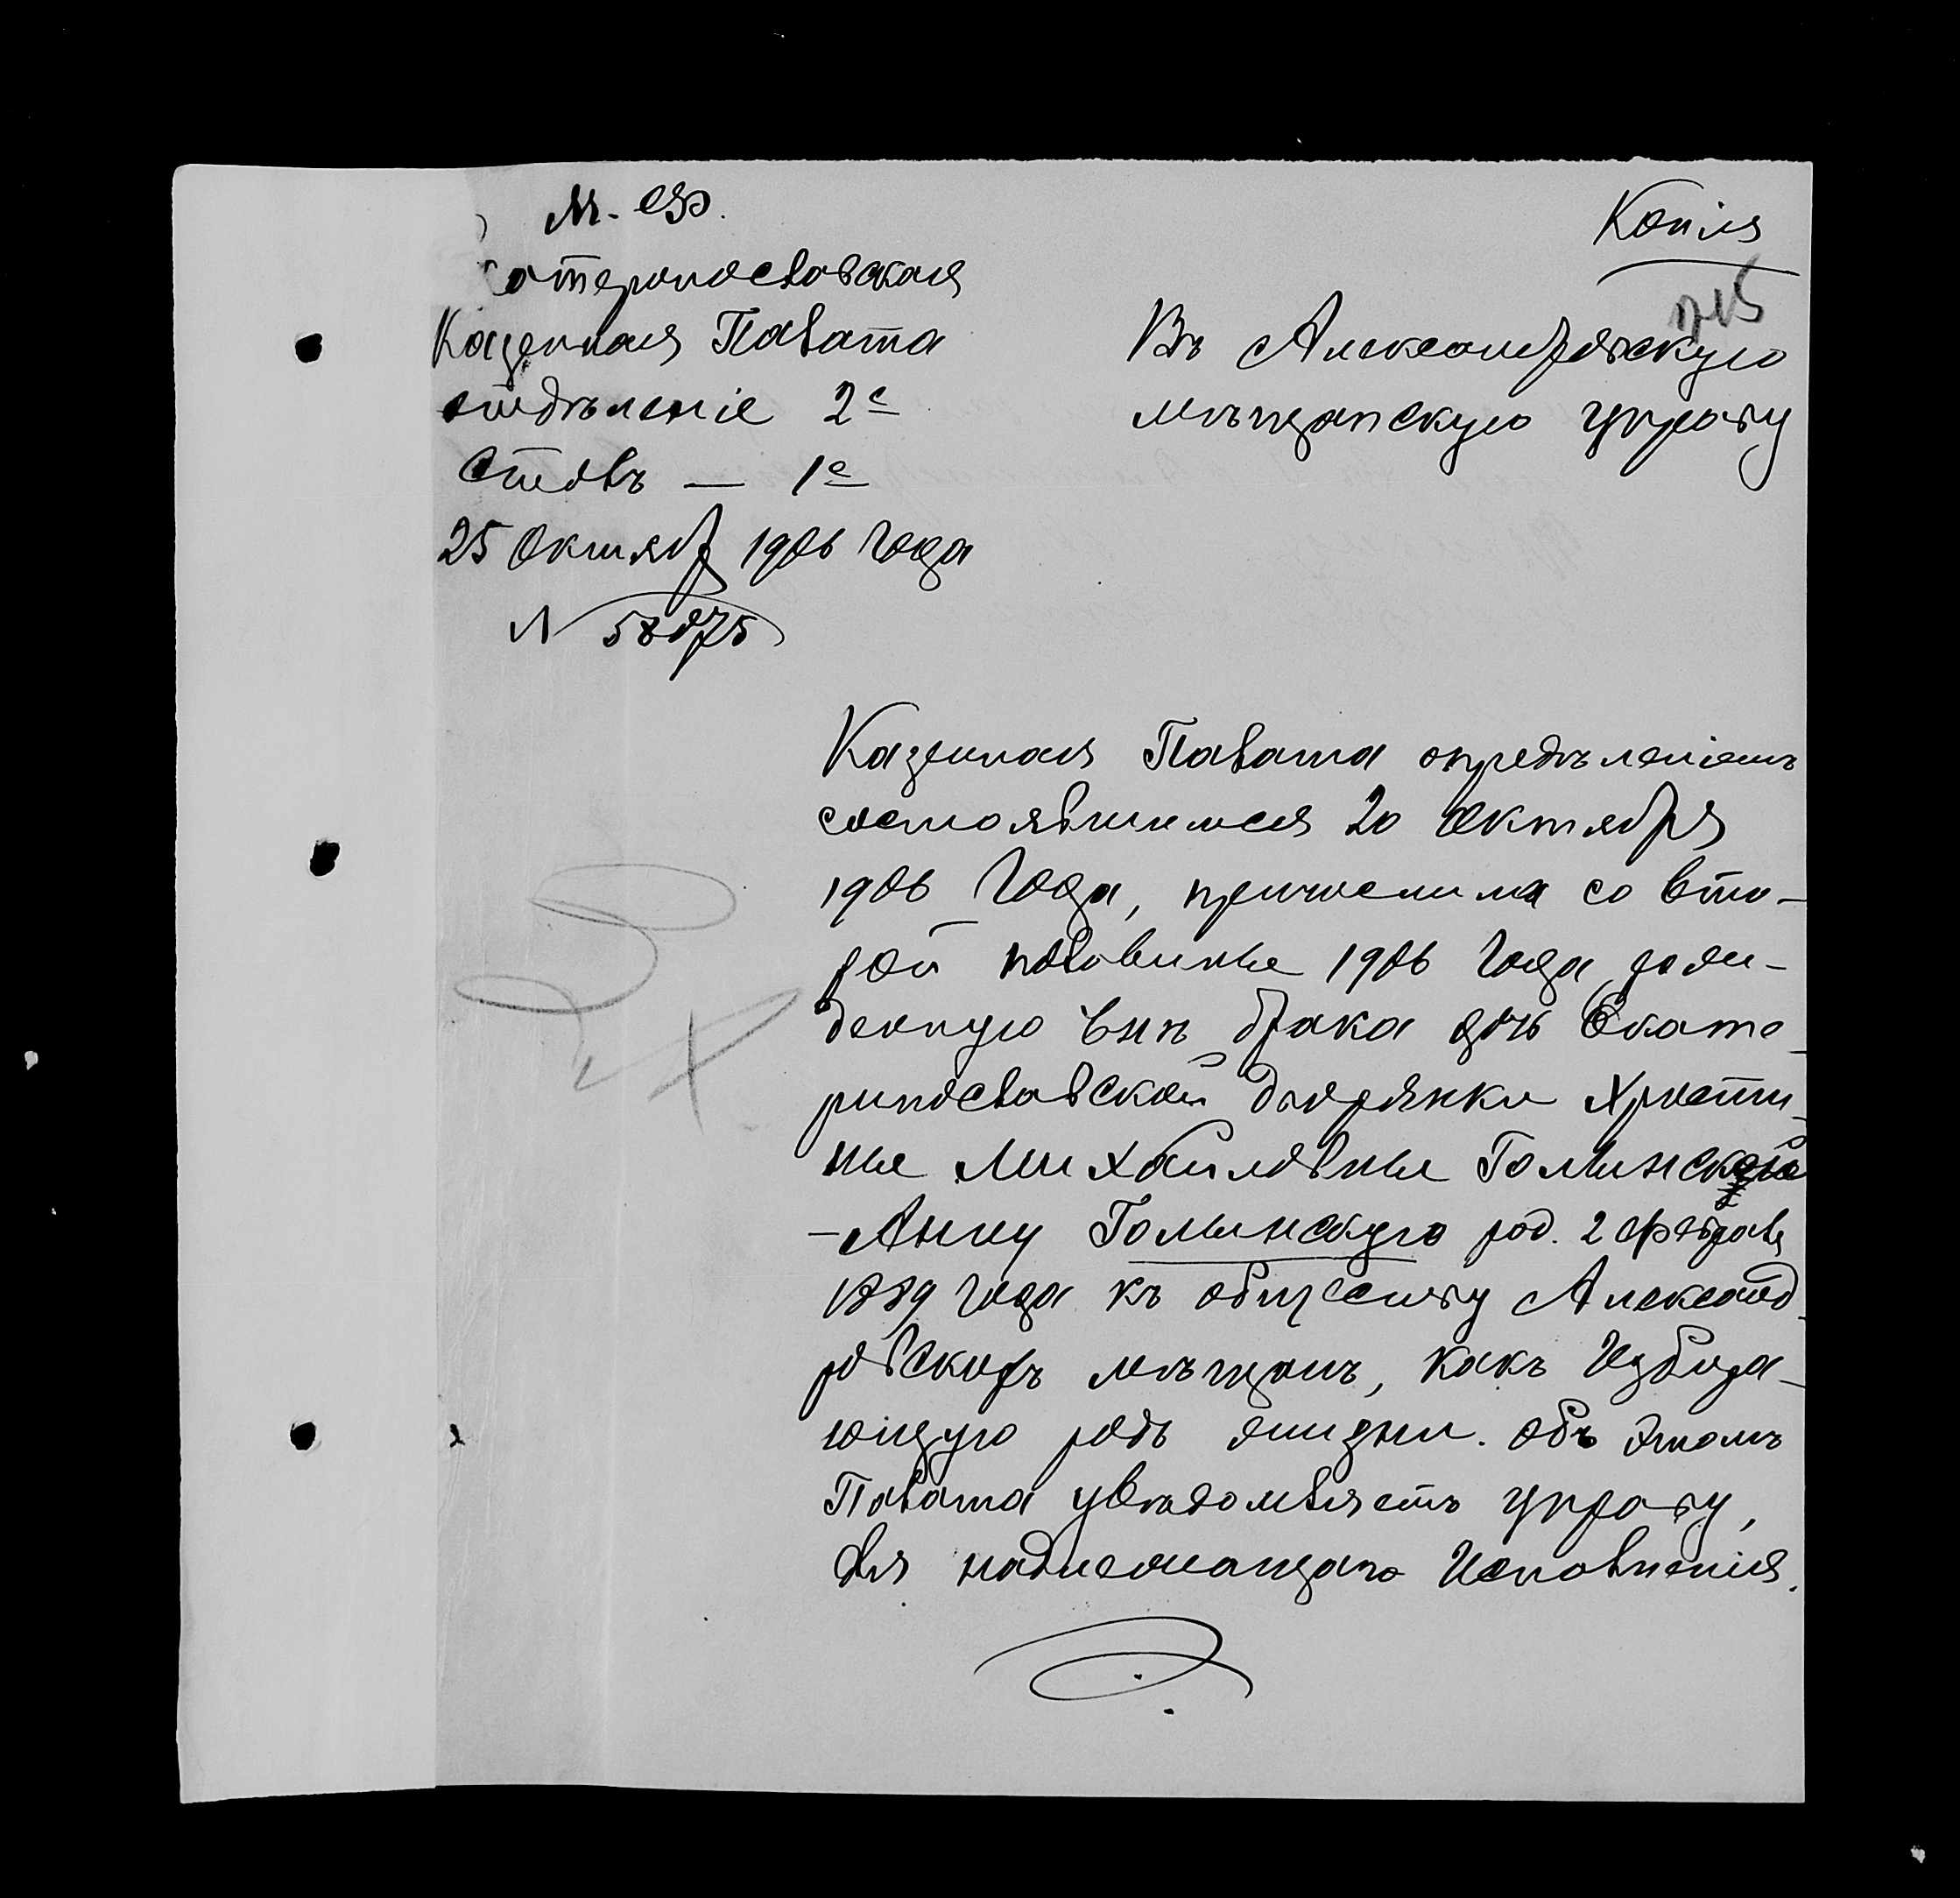 М. Ф.
Копія
катеринославская
Казенная Палата
отдѣленіе 2е
Столъ — 1е
25 Октября 1906 года
N 58075
Въ Александровскую
мѣщанскую управу
Казенная Палата опредѣленіемъ
состоявшимся 20 Октября
1906 года, причислила со вто-
рой половины 1906 года рож-
денную внѣ брака дочь Екате-
ринославской дворянки Христи-
ны Михайловны Голынской
-Анну Голынскую род. 2 февраля
1889 года къ обществу Александ-
ровскихъ мѣщанъ, какъ избира-
ющую родъ жизни. Объ этомъ
Палата увѣдомляетъ управу,
для надлежащаго исполненія.